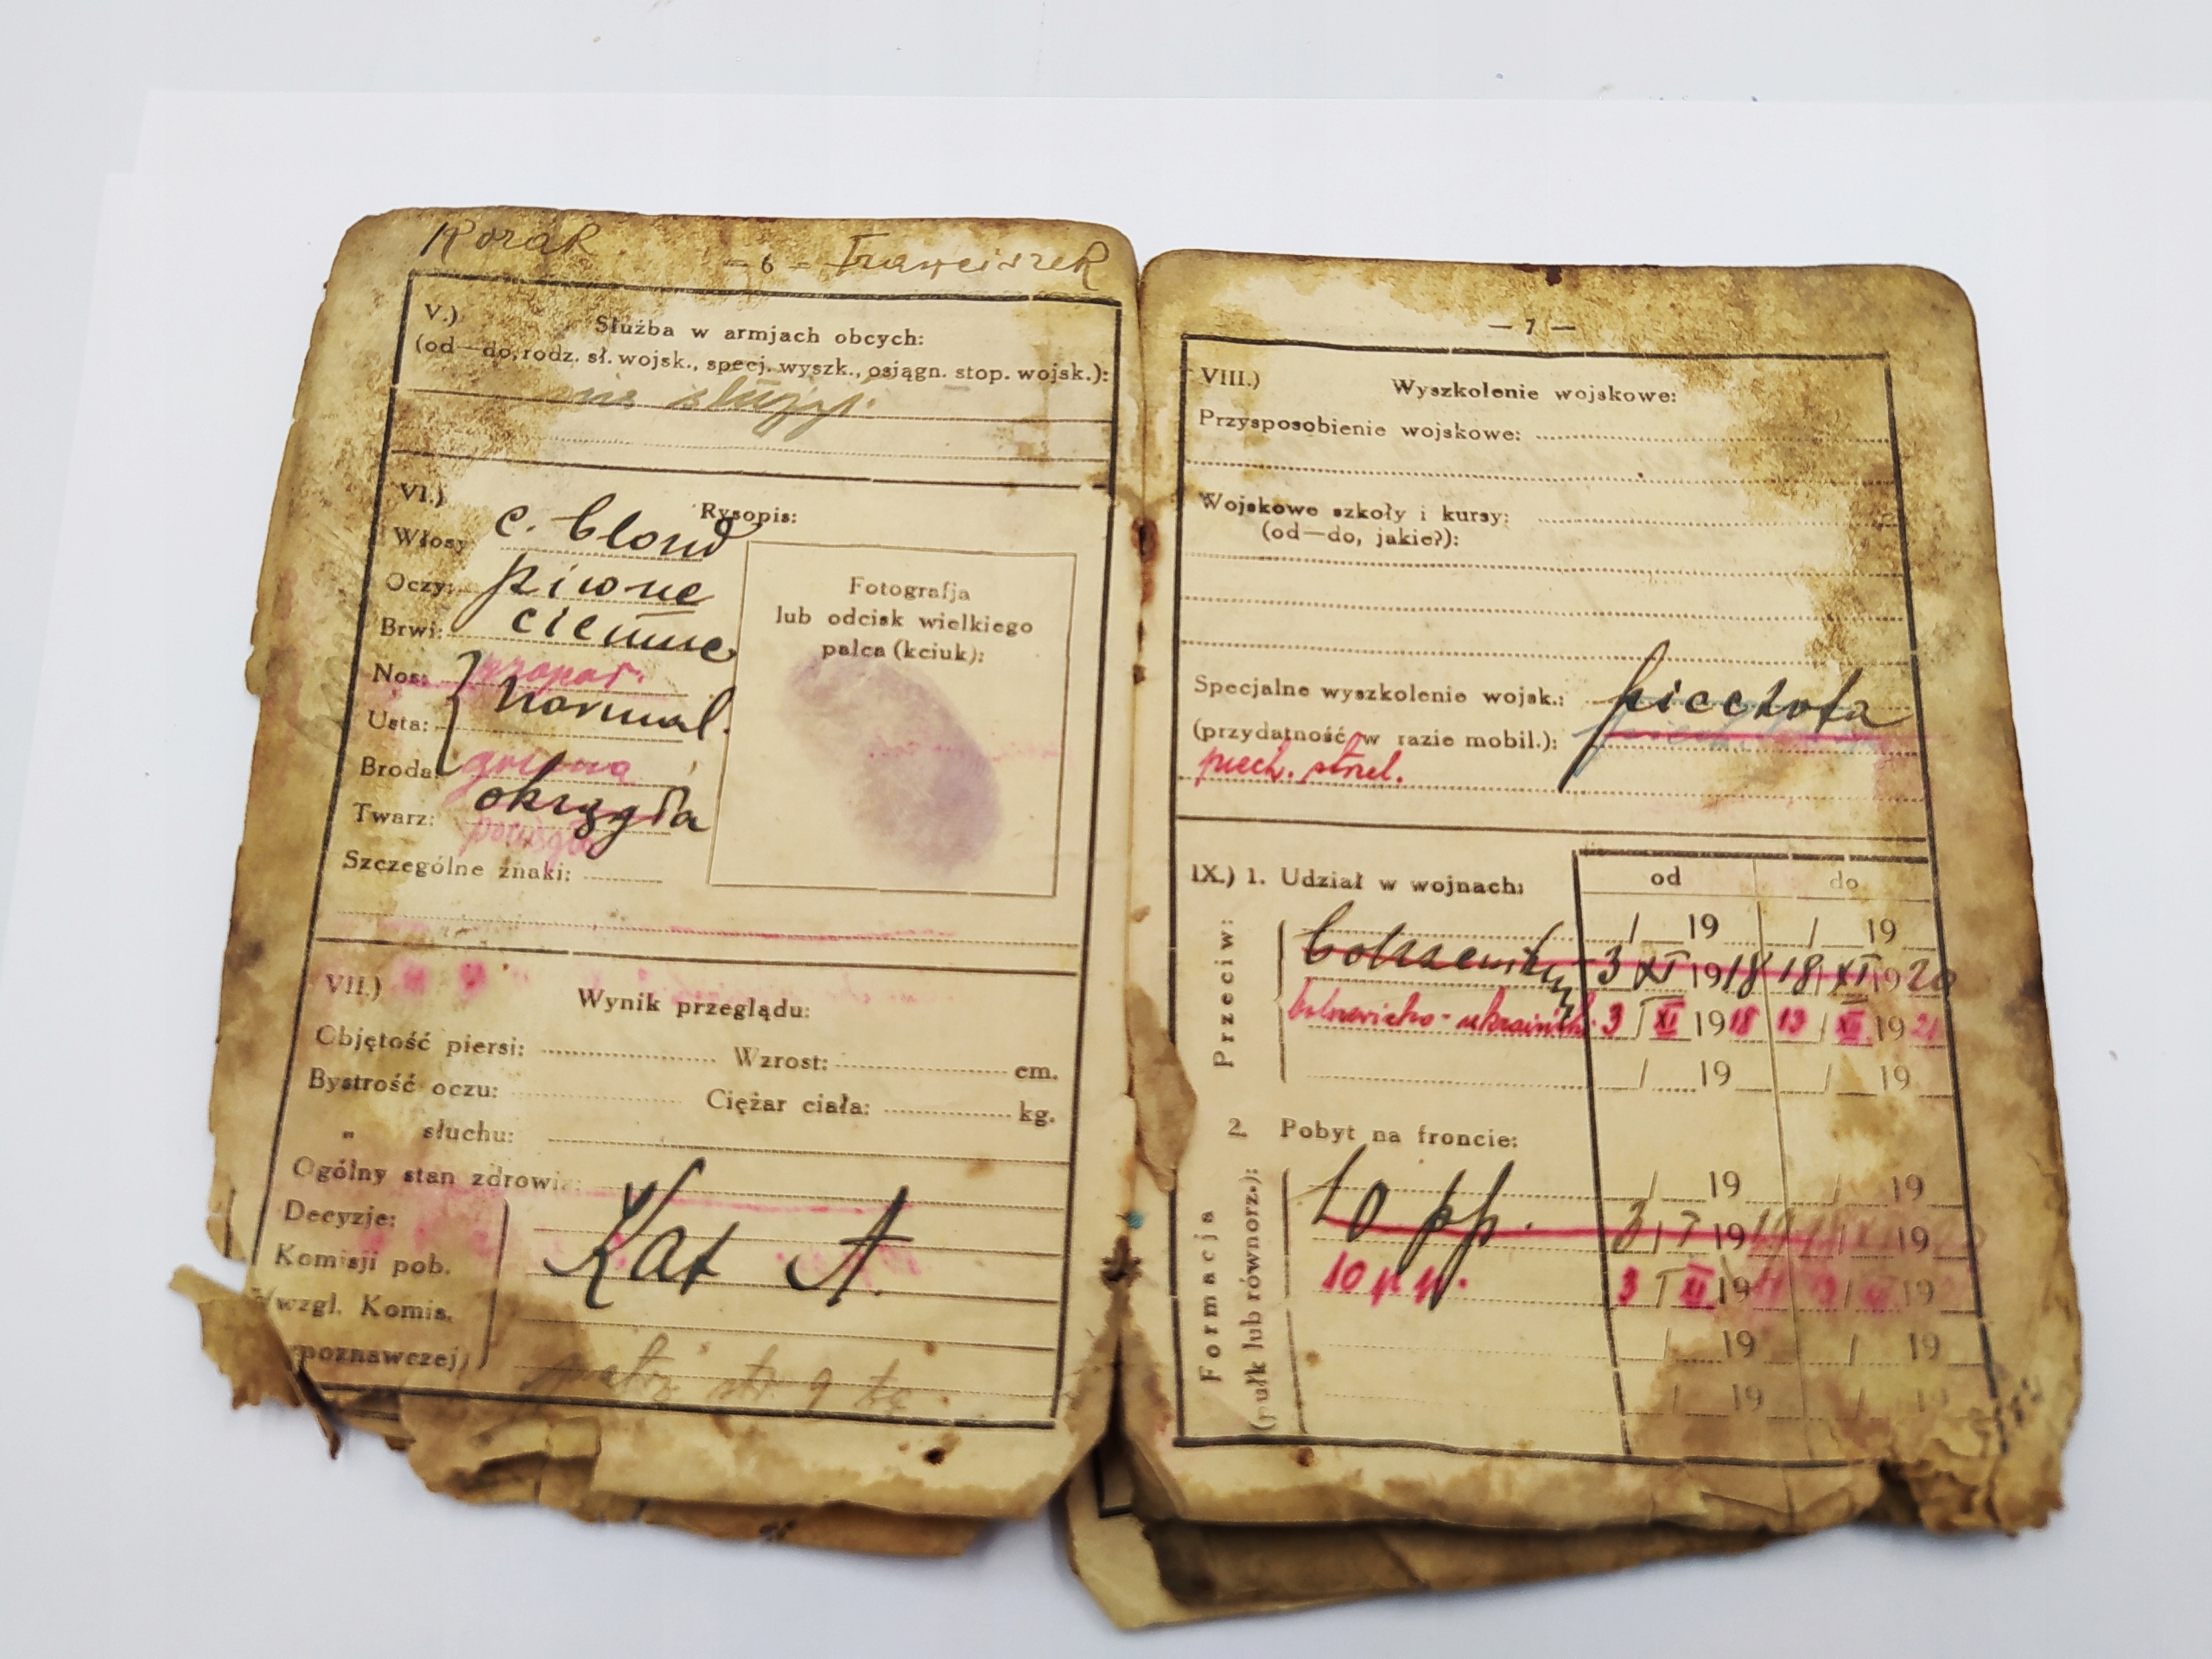 Korak Franciszek
— 6 —
V.) Służba w armjach obcych:
(od—do, rodz. sł. wojsk., specj. wyszk., osiągn. stop. wojsk.):
nie służył.
VI.) Rysopis:
Włosy c. blond
Oczy: piwne
Brwi: ciemne
Nos: propor.
normal.
Usta:
Broda: golona
okrągła
Twarz: pociągła
Szczególne znaki:
Fotografja
lub odcisk wielkiego
palca (kciuk):
VII.) Wynik przeglądu:
Objętość piersi: Wzrost: cm.
Bystrość oczu: Ciężar ciała: kg.
„ słuchu:
Ogólny stan zdrowia:
Decyzje:
Komisji pob. Kat A.
(wzgl. Komis.
poznawczej)
patrz str 9
— 7 —
VIII.) Wyszkolenie wojskowe:
Przysposobienie wojskowe:
Wojskowe szkoły i kursy:
(od—do, jakie?):
Specjalne wyszkolenie wojsk.: piechota
(przydatność w razie mobil.):
piech. strzel.
IX.) 1. Udział w wojnach: od do
Przeciw:
/ 19 / 19
3 / XI 1918 18 / XI 1920
3 / XI 1918 13 / XII 1921
/ 19 / 19
2. Pobyt na froncie:
Formacja
(pułk lub równorz.):
/ 19 / 19
10 pp.
10 p.p. 3 / XI 19
/ 19 / 19
/ 19